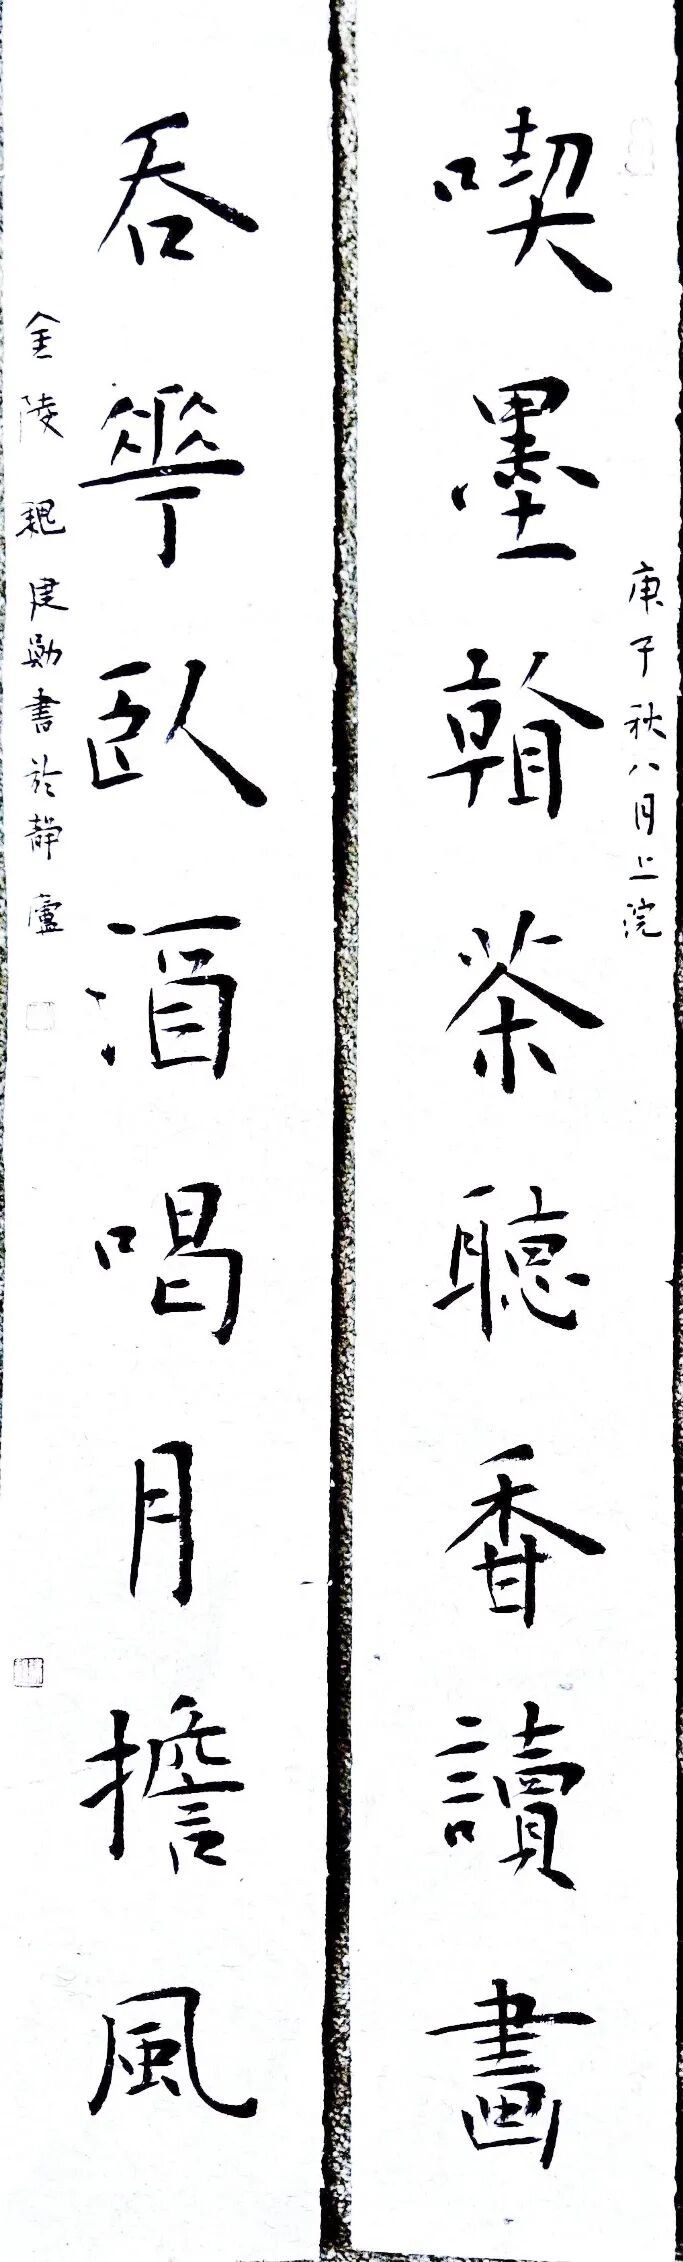 喫墨翰茶聽香讀畫
庚子秋八月上浣
吞華臥酒喝月擔風
金陵魏建勛書於靜廬